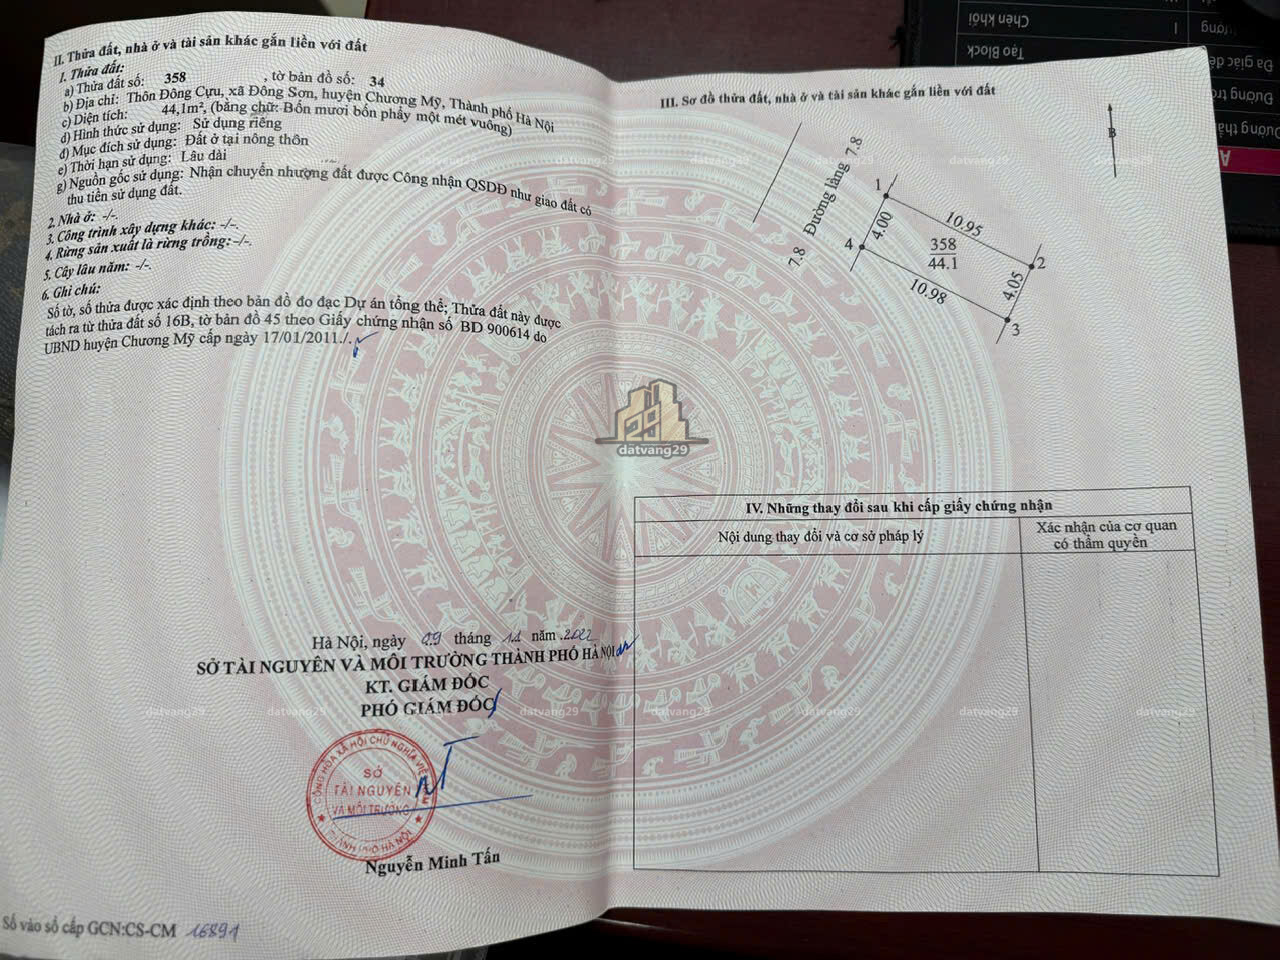 II. Thửa đất, nhà ở và tài sản khác gắn liền với đất
1. Thửa đất:
a) Thửa đất số: 358 , tờ bản đồ số: 34
b) Địa chỉ: Thôn Đông Cựu, xã Đông Sơn, huyện Chương Mỹ, Thành phố Hà Nội
c) Diện tích: 44,1m², (bằng chữ: Bốn mươi bốn phẩy một mét vuông)
d) Hình thức sử dụng: Sử dụng riêng
đ) Mục đích sử dụng: Đất ở tại nông thôn
e) Thời hạn sử dụng: Lâu dài
g) Nguồn gốc sử dụng: Nhận chuyển nhượng đất được Công nhận QSDĐ như giao đất có
thu tiền sử dụng đất.
2. Nhà ở: -/-.
3. Công trình xây dựng khác: -/-.
4. Rừng sản xuất là rừng trồng: -/-.
5. Cây lâu năm: -/-.
6. Ghi chú:
Số tờ, số thửa được xác định theo bản đồ đo đạc Dự án tổng thể; Thửa đất này được
tách ra từ thửa đất số 16B, tờ bản đồ 45 theo Giấy chứng nhận số BD 900614 do
UBND huyện Chương Mỹ cấp ngày 17/01/2011./.
Hà Nội, ngày 29 tháng 11 năm 2022
SỞ TÀI NGUYÊN VÀ MÔI TRƯỜNG THÀNH PHỐ HÀ NỘI
KT. GIÁM ĐỐC
PHÓ GIÁM ĐỐC
CỘNG HÒA XÃ HỘI CHỦ NGHĨA VIỆT NAM
SỞ
TÀI NGUYÊN
VÀ MÔI TRƯỜNG
THÀNH PHỐ HÀ NỘI
Nguyễn Minh Tấn
Số vào sổ cấp GCN:CS-CM 16891
III. Sơ đồ thửa đất, nhà ở và tài sản khác gắn liền với đất
B
7.8 Đường làng 7.8
1
10.95
4.00
4
358
44.1
2
4.05
10.98
3
IV. Những thay đổi sau khi cấp giấy chứng nhận
Nội dung thay đổi và cơ sở pháp lý
Xác nhận của cơ quan
có thẩm quyền
29
datvang29
datvang29 datvang29 datvang29 datvang29 datvang29 datvang29
datvang29 datvang29 datvang29 datvang29 datvang29 datvang29
Chèn khối
Tạo Block
Đa giác đề